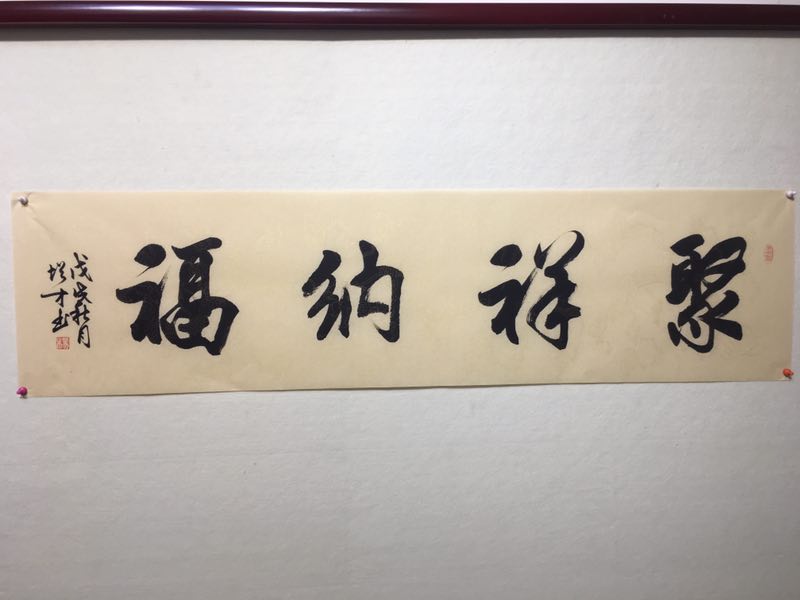 聚祥纳福
戊戌秋月
增才书